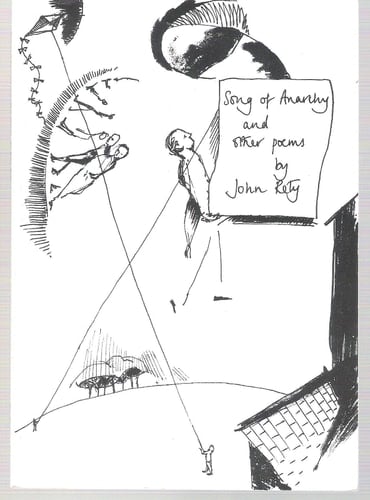 Song of Anarchy
and
other poems
by
John Rety